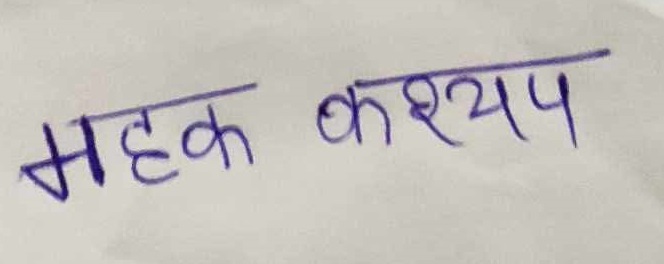 महक कश्यप